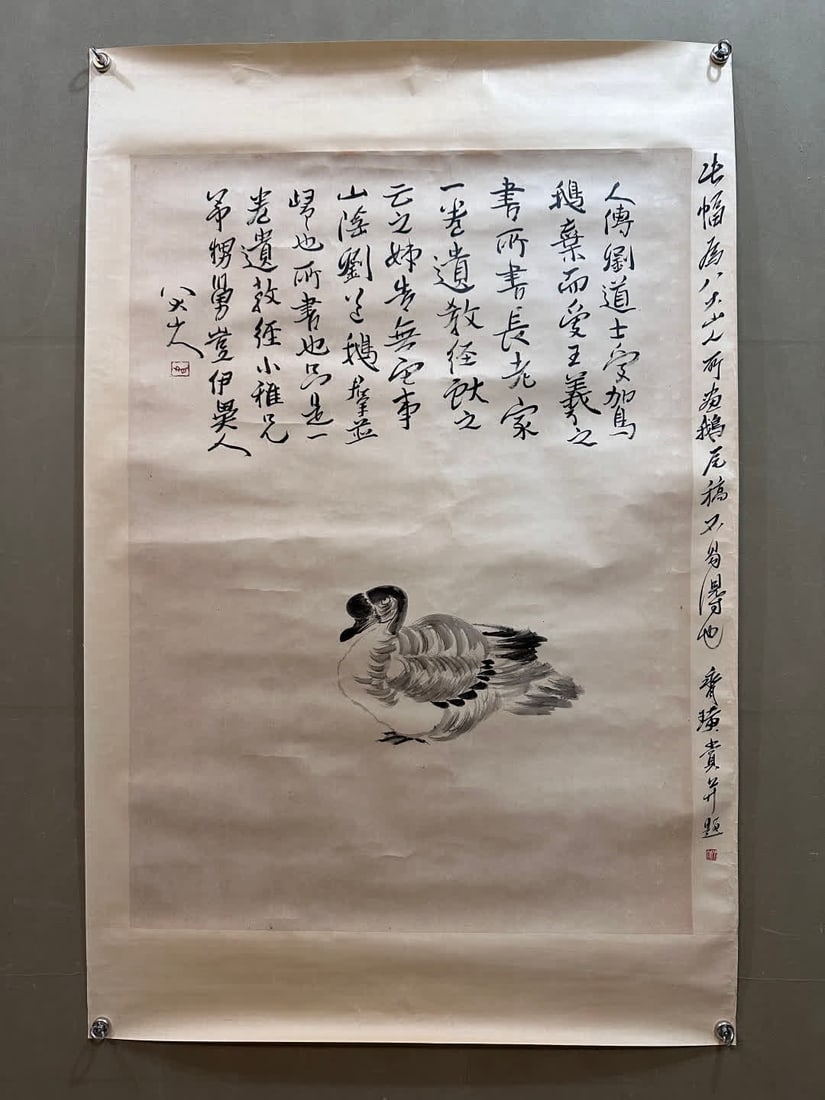 此幅為八大山人所畫鵝底稿不易得也 齊璜賞并題
人傳劉道士鴐
鵝棄而受王羲之
書所書長老家
一卷遺教經獻之
云之姊告無它事
山陰劉道鵝羣並
歸也所書也只是一
卷遺教經小雅兄
弟甥舅豈伊異人
八大山人